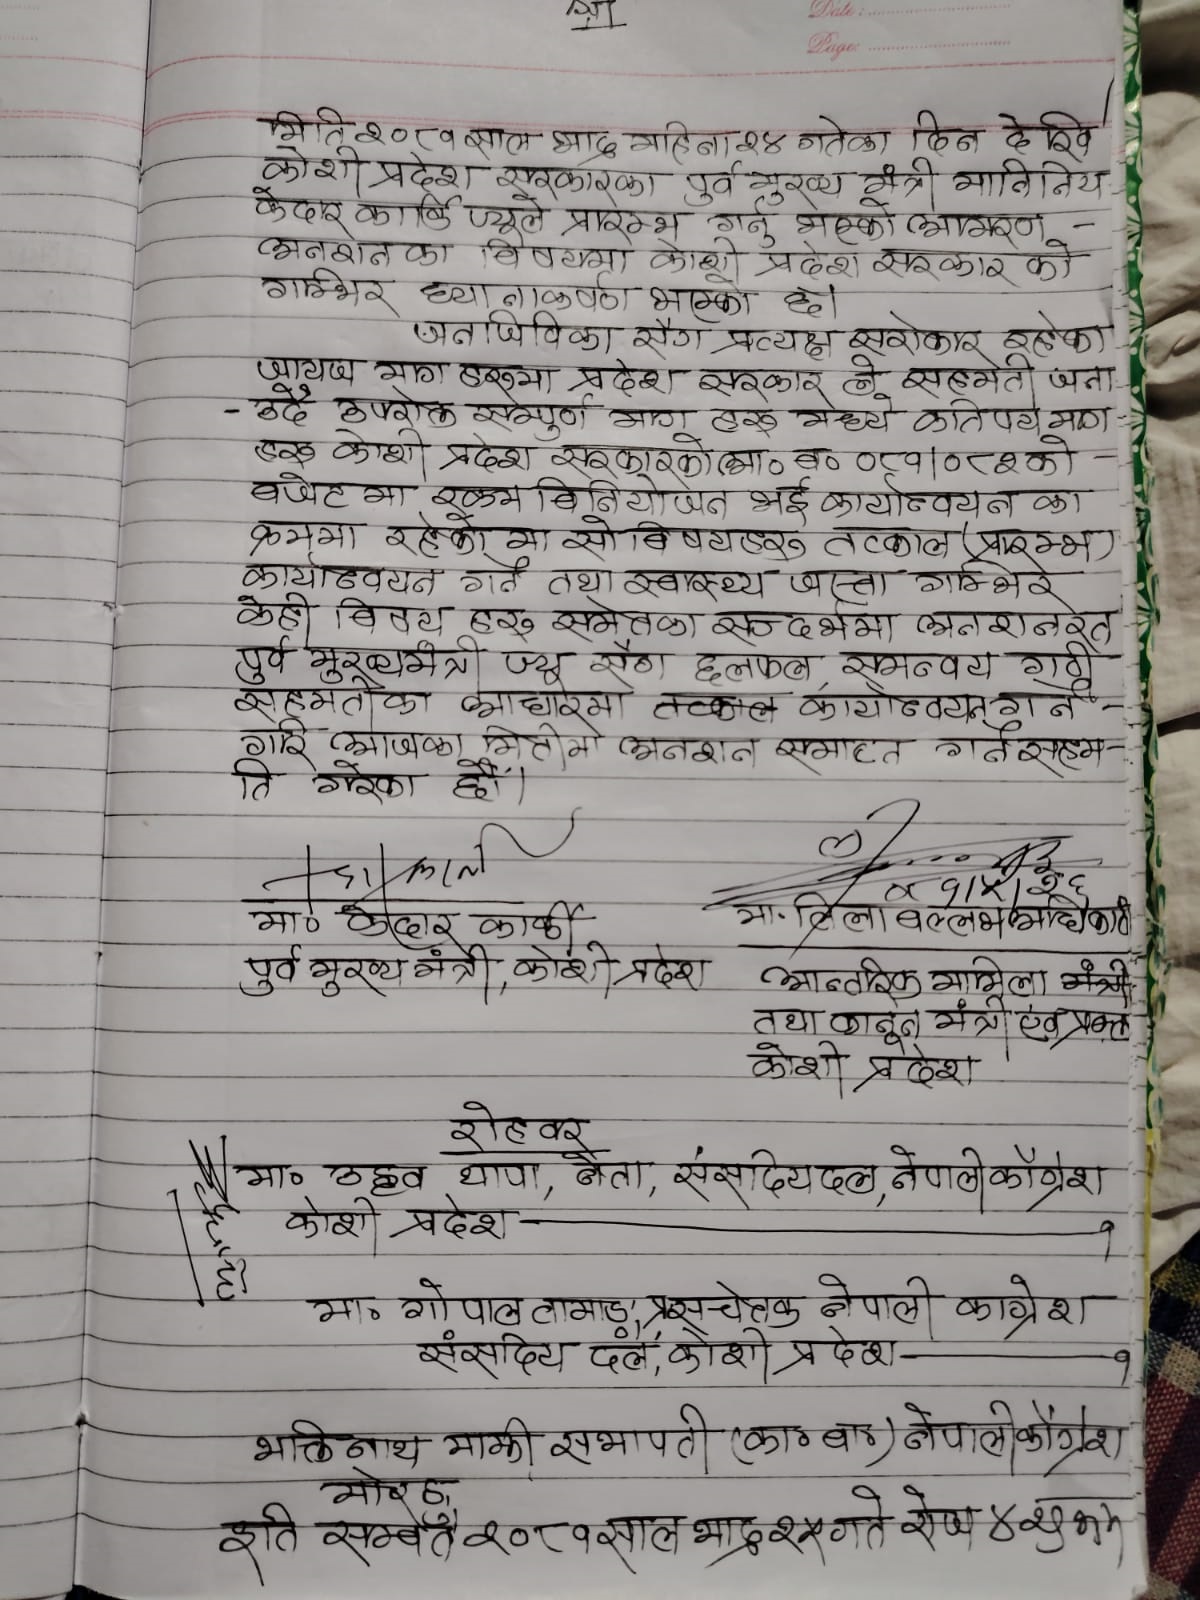 श्री
Date:
Page:
मिति २०८१ साल भाद्र महिना २४ गतेका दिन देखि
कोशी प्रदेश सरकारका पुर्व मुख्य मंत्री माननिय
केदार कार्कि ज्यूले प्रारम्भ गर्नु भएको आमरण -
अनशन का विषयमा कोशी प्रदेश सरकार को
गम्भिर ध्यानाकर्षण भएको छ।
जनजिविका सँग प्रत्यक्ष सरोकार रहेका
जायज माग हरुमा प्रदेश सरकार ले सहमती जना
- उदै उपरोक्त सम्पुर्ण माग हरु मध्ये कतिपय माग
हरु कोशी प्रदेश सरकारको आ० ब० ०८१।०८२ को -
बजेट मा रकम विनियोजन भई कार्यान्वयन का
क्रममा रहेको मा सो विषयहरु तत्काल (प्रारम्भ)
कार्यान्वयन गर्न तथा स्वास्थ्य जस्ता गम्भिर
केही विषय हरु समेतका सन्दर्भमा अनशनरत
पुर्व मुख्यमंत्री ज्यू सँग छलफल, समन्वय गरी
सहमतीका आधारमा तत्काल कार्यान्वयन गर्ने -
गरि आजका मितीमा अनशन समाप्त गर्न सहम-
ति गरेका छौं।
मा० केदार कार्की
पुर्व मुख्य मंत्री, कोशी प्रदेश
८१/५/२६
मा. लिला बल्लभ अधिकारी
आन्तरिक मामिला मंत्री
तथा कानून मंत्री एवं प्रवक्ता
कोशी प्रदेश
रोहवर
मा० उद्धव थापा, नेता, संसदिय दल, नेपाली काँग्रेश
कोशी प्रदेश - १
मा० गोपाल तामाङ, प्रमुख सचेतक नेपाली काग्रेश
संसदिय दल, कोशी प्रदेश - १
भक्ति नाथ माझी सभापती (का० बा०) नेपाली काँग्रेश
मोरङ,
इति सम्बत २०८१ साल भाद्र २५ गते रोज ४ शुभम